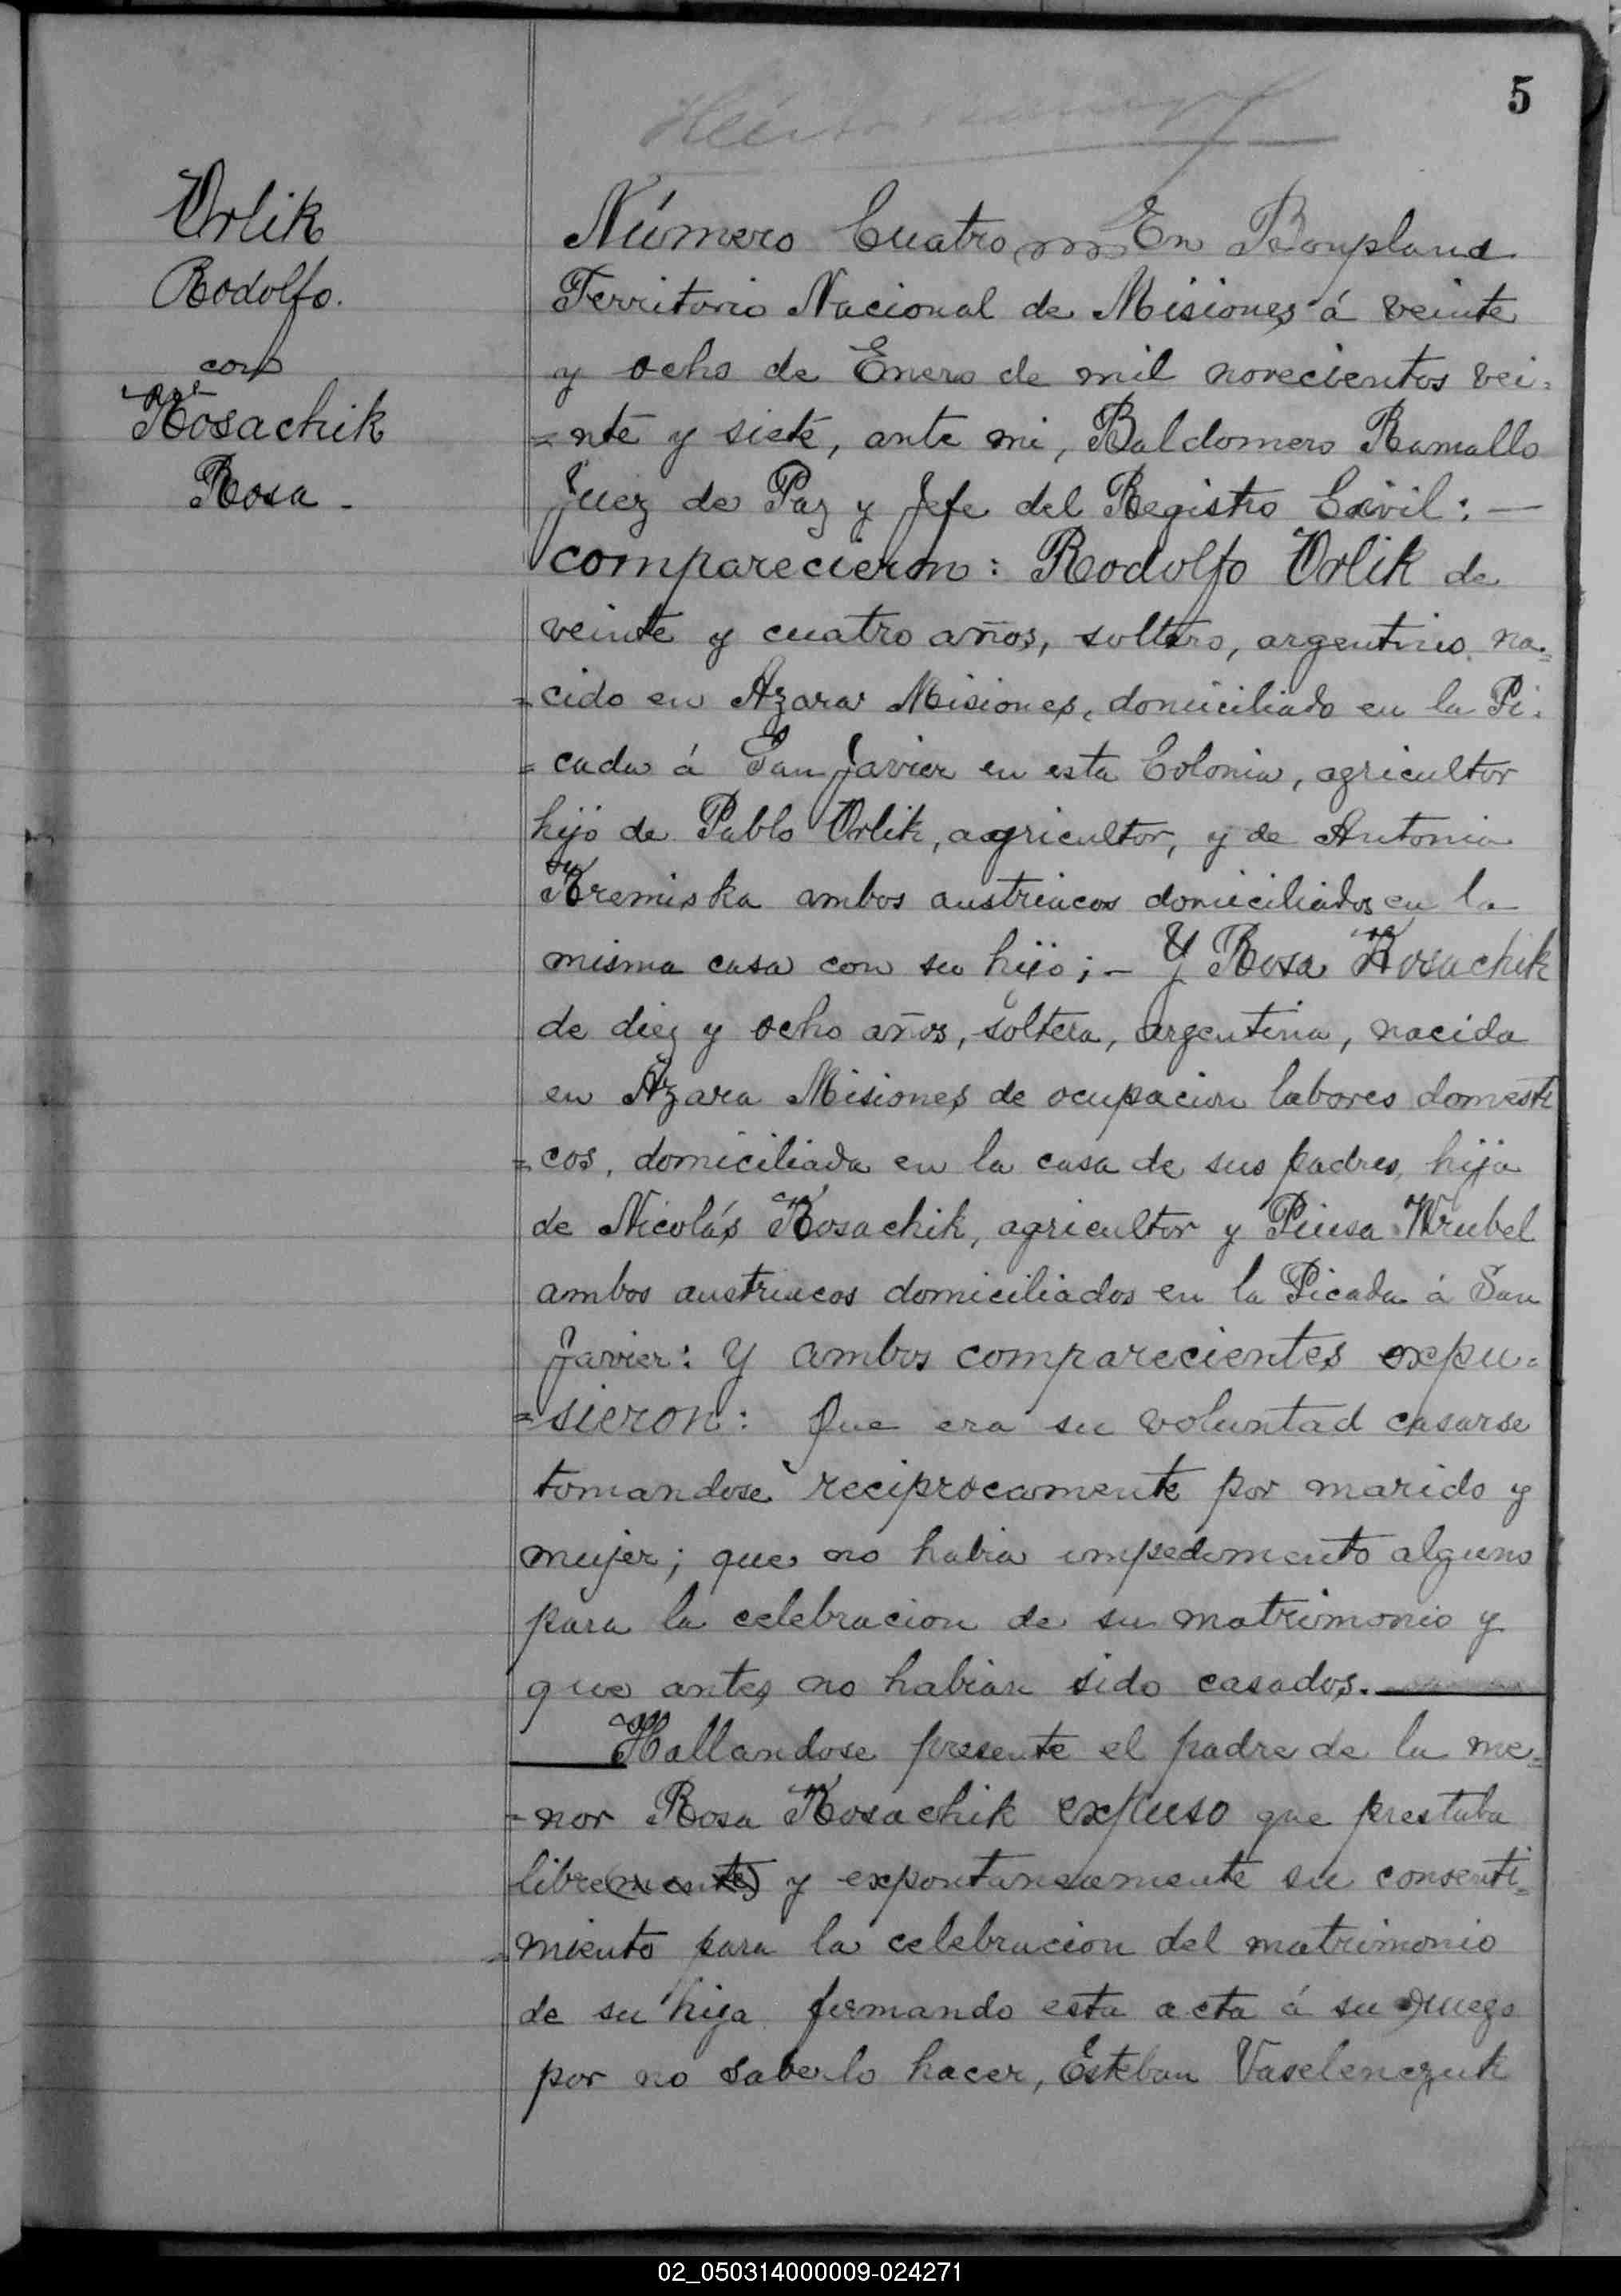 5
Orlik
Rodolfo.
con
Kosachik
Rosa -
Número Cuatro En Bonpland
Territorio Nacional de Misiones á veinte
y ocho de Enero de mil novecientos vei=
=nte y siete, ante mi, Baldomero Ramallo
Juez de Paz y Jefe del Registro Civil: —
comparecieron: Rodolfo Orlik de
veinte y cuatro años, soltero, argentino na=
=cido en Azara Misiones, domiciliado en la Pi=
=cada á San Javier en esta Colonia, agricultor
hijo de Pablo Orlik, agricultor, y de Antonia
Kremiska ambos austriacos domiciliados en la
misma casa con su hijo; - Y Rosa Kosachik
de diez y ocho años, soltera, argentina, nacida
en Azara Misiones de ocupacion labores domesti
=cos, domiciliada en la casa de sus padres, hija
de Nicolás Kosachik, agricultor y Piusa Wrubel
ambos austriacos domiciliados en la Picada á San
Javier: Y ambos comparecientes expu=
=sieron: Que era su voluntad casarse
tomandose reciprocamente por marido y
mujer; que no habia impedimento alguno
para la celebracion de su matrimonio y
que antes no habian sido casados. —
Hallandose presente el padre de la me=
=nor Rosa Kosachik expuso que prestaba
libre(mente) y expontaneamente su consenti=
=miento para la celebracion del matrimonio
de su hija firmando esta acta á su ruego
por no saberlo hacer, Esteban Vaselenczuk
02_050314000009-024271